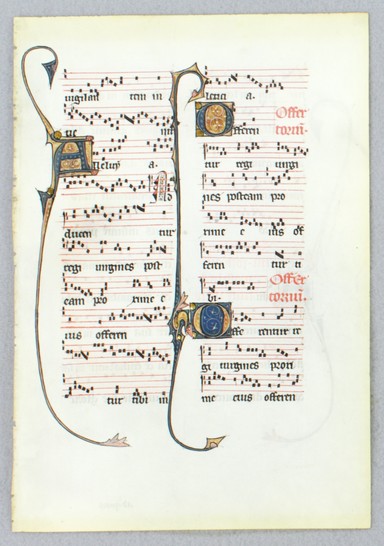 uigilan tem in
ue
A lleluy a.
ducen tur
regi uirgines post
eam pro xime e
ius offeren
tur tibi in
leticia a.
Offer
Offeren torium.
tur regi uirgi
nes posteam pro
xime e ius of
feren tur ti
bi. Offer
torium.
Offe rentur re
gi uirgines proxi
me eius offeren